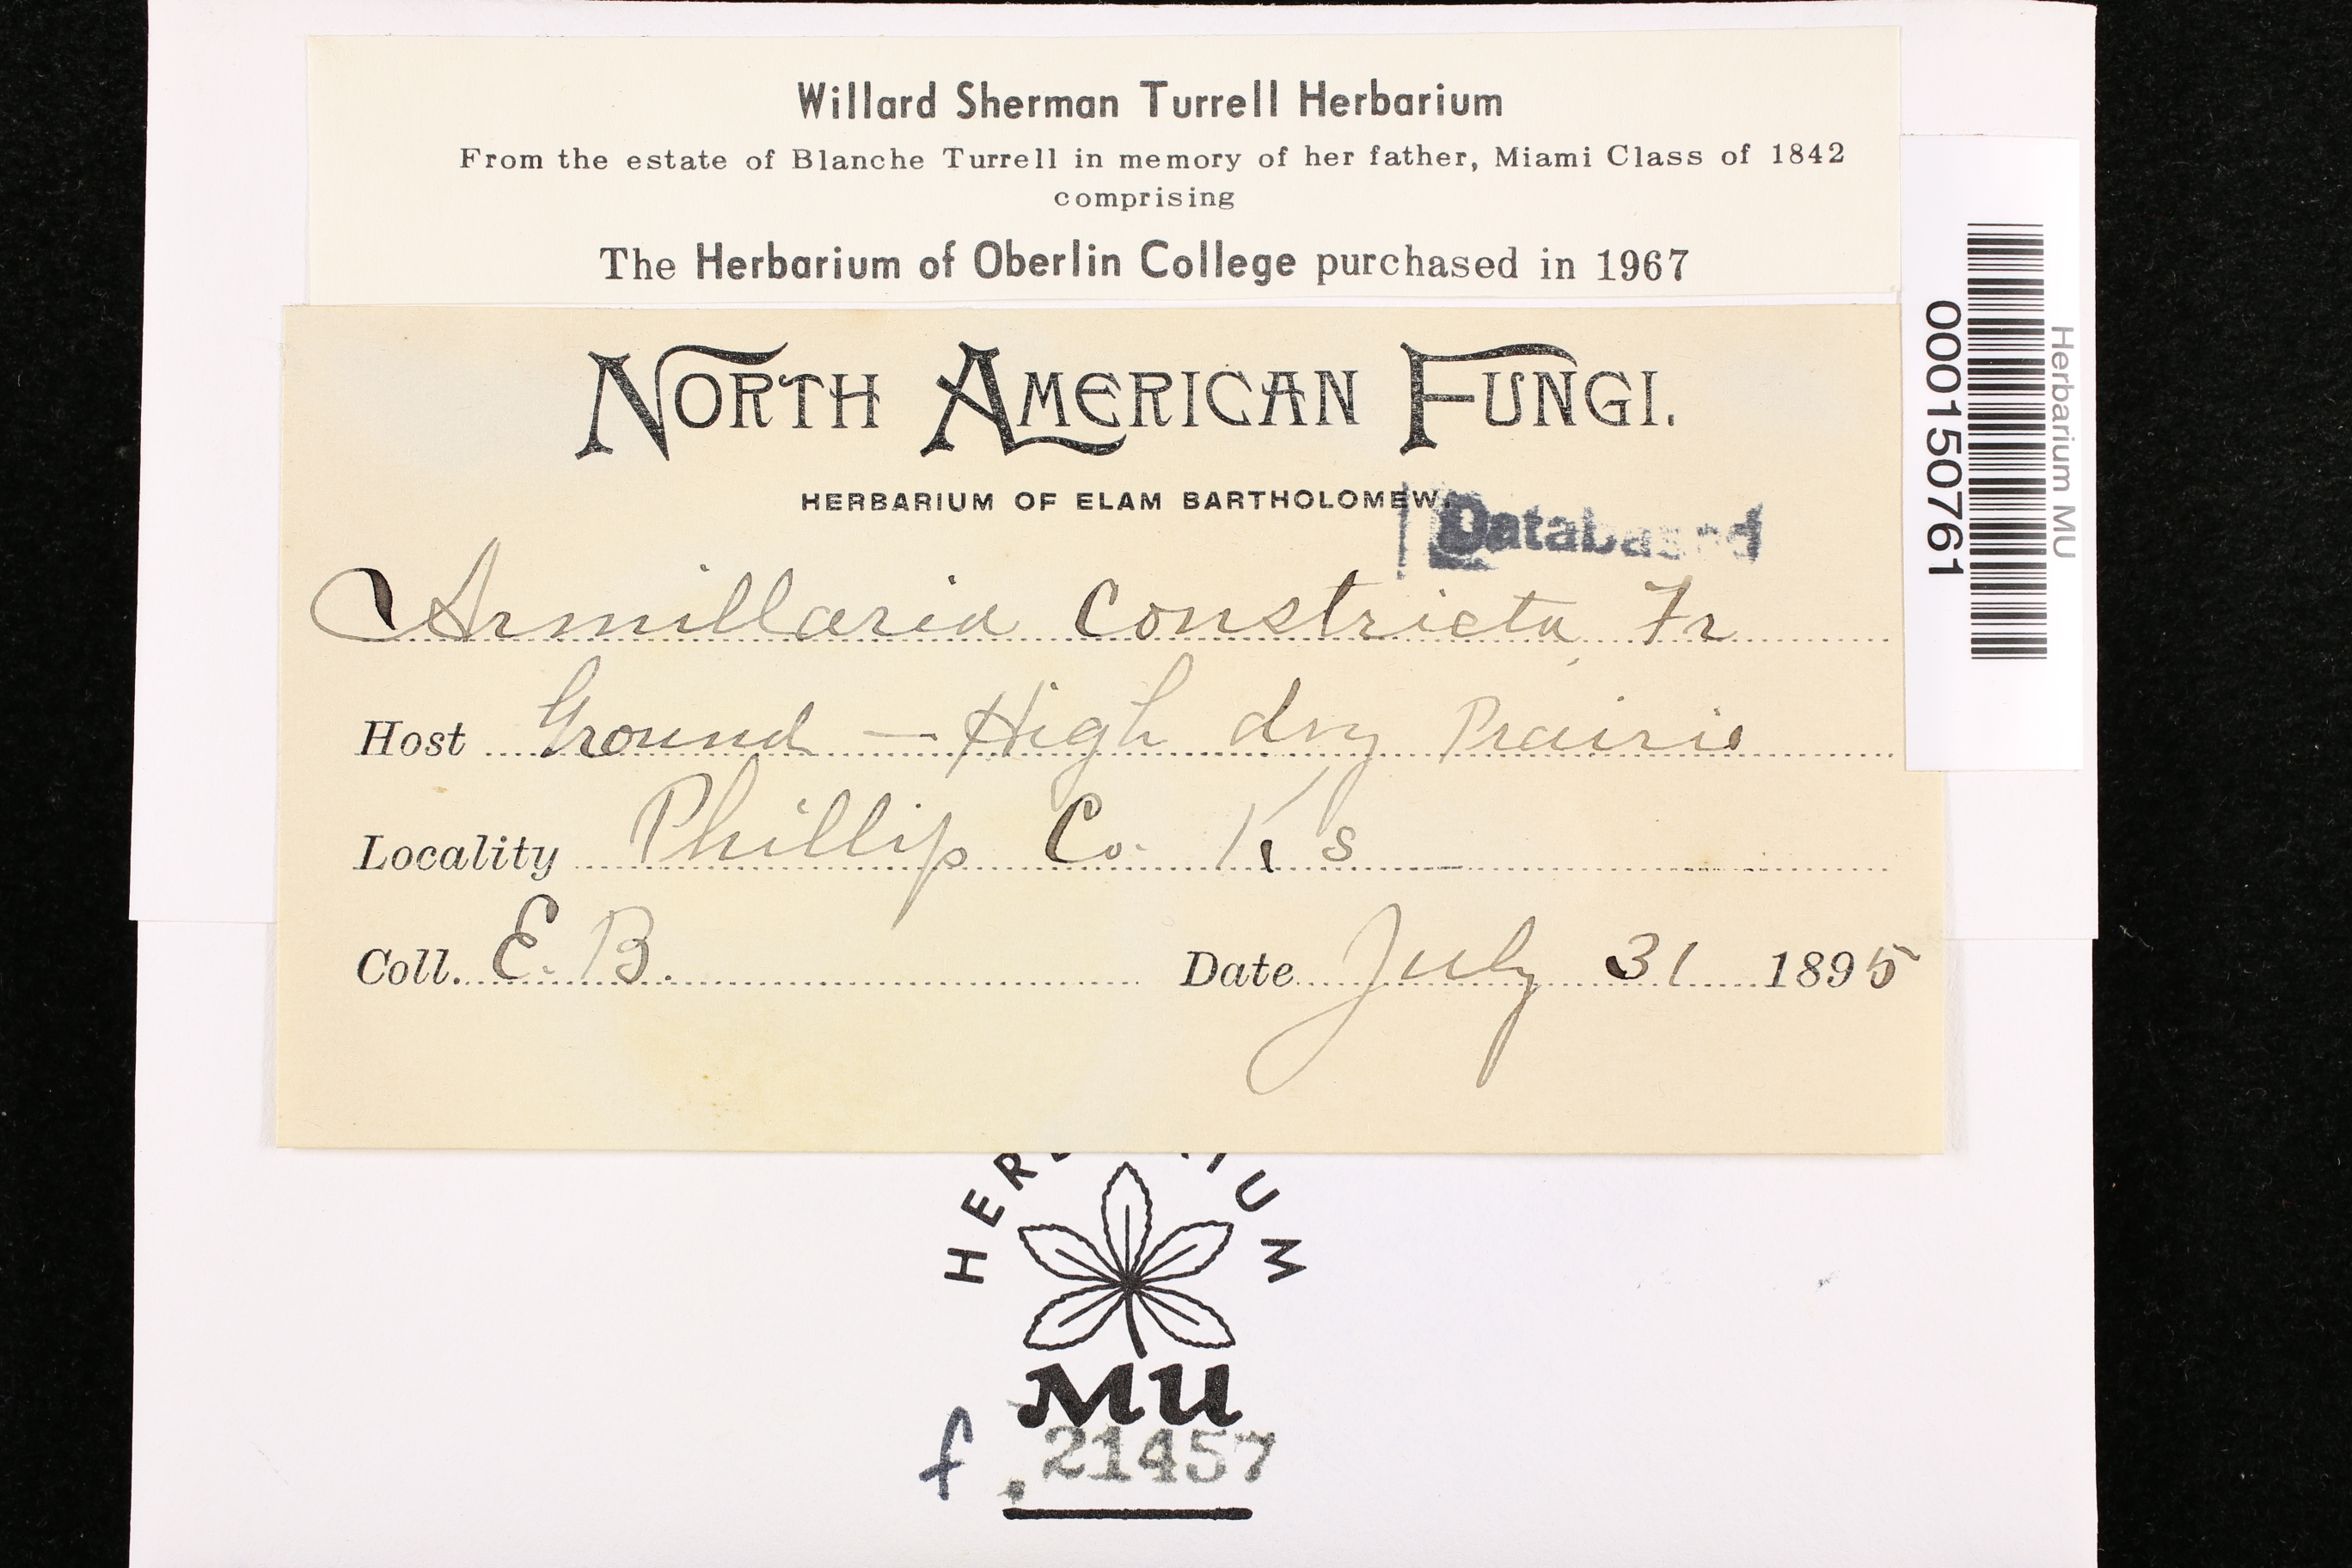 Willard Sherman Turrell Herbarium
From the estate of Blanche Turrell in memory of her father, Miami Class of 1842
comprising
The Herbarium of Oberlin College purchased in 1967
NORTH AMERICAN FUNGI.
HERBARIUM OF ELAM BARTHOLOMEW.
Databased
Armillaria Constricta, Fr
Host Ground — High dry Prairie
Locality Phillip Co. Ks
Coll. E. B. Date July 31 1895
HERBARIUM
MU
f. 21457
Herbarium MU
000150761